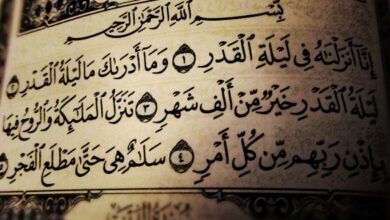 بِسْمِ اللَّهِ الرَّحْمَٰنِ الرَّحِيمِ
إِنَّا أَنْزَلْنَاهُ فِي لَيْلَةِ الْقَدْرِ ١ وَمَا أَدْرَاكَ مَا لَيْلَةُ الْقَدْرِ ٢
لَيْلَةُ الْقَدْرِ خَيْرٌ مِّنْ أَلْفِ شَهْرٍ ٣ تَنَزَّلُ الْمَلَائِكَةُ وَالرُّوحُ فِيهَا
بِإِذْنِ رَبِّهِم مِّن كُلِّ أَمْرٍ ٤ سَلَامٌ هِيَ حَتَّىٰ مَطْلَعِ الْفَجْرِ